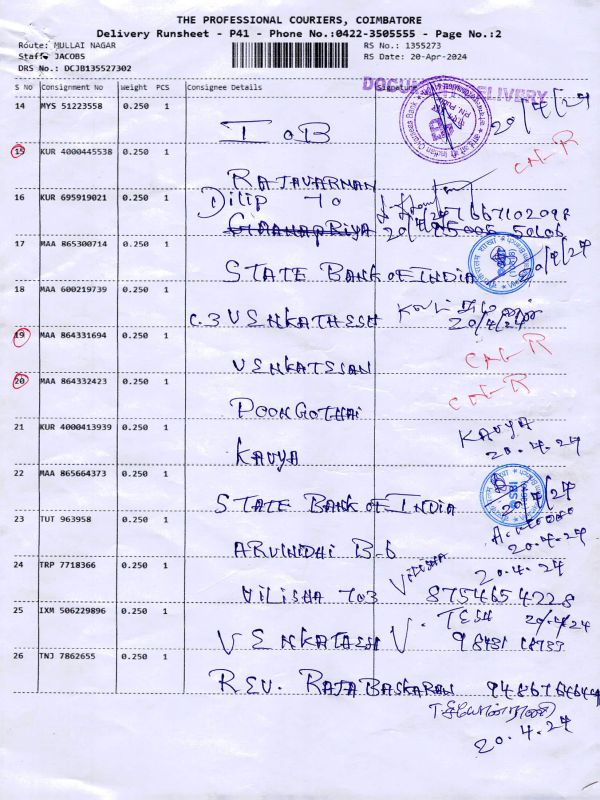 THE PROFESSIONAL COURIERS, COIMBATORE
Delivery Runsheet - P41 - Phone No.:0422-3505555 - Page No.:2
Route: MULLAI NAGAR
RS No.: 1355273
Staff: JACOBS
RS Date: 20-Apr-2024
DRS No.: DCJB135527302
S No Consignment No Weight PCS Consignee Details Signature
DELIVERY
14 MYS 51223558 0.250 1
IOB 20/4/24
15 KUR 4000445538 0.250 1
CNL-R
RAJAVARNAN
16 KUR 695919021 0.250 1
Dilip To 7667102098
20/4/24
17 MAA 865300714 0.250 1
STATE BANK of INDIA 20/4/24
18 MAA 600219739 0.250 1
C.3 VENKATHESH 20/4/24
19 MAA 864331694 0.250 1
CNL-R
VENKATESAN
20 MAA 864332423 0.250 1
CNL-R
POONGOTHAI
21 KUR 4000413939 0.250 1
KAVYA
20.4.24
KAVYA
22 MAA 865664373 0.250 1
SBI
20/4/24
STATE BANK of INDIA
23 TUT 963958 0.250 1
20.4.24
ARVINIDHI B-6
24 TRP 7718366 0.250 1
VILISHA 20.4.24
VILISHA 703 8754654228
25 IXM 506229896 0.250 1
TESH 20/4/24
VENKATHESH V.
26 TNJ 7862655 0.250 1
REV. RAJA BASKARAN
20.4.24